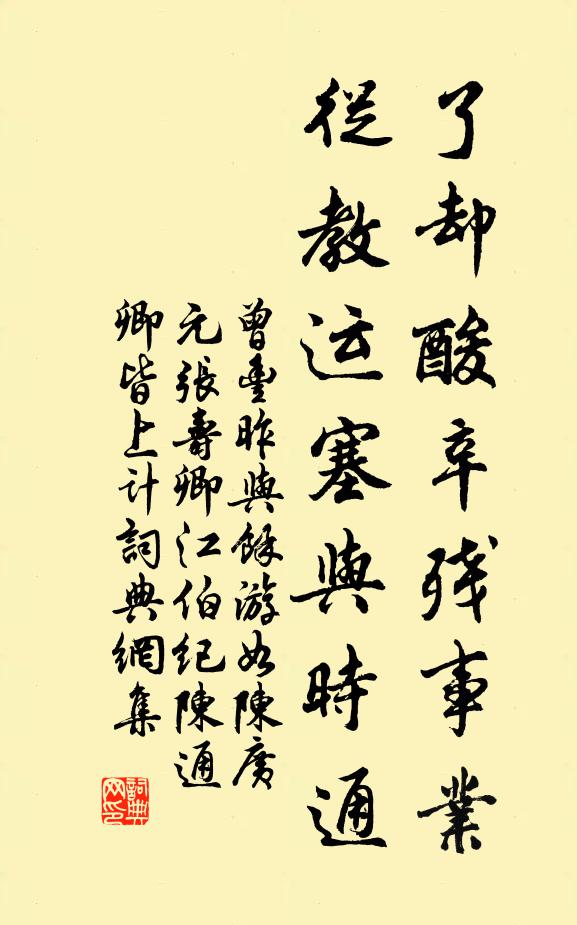 了却酸辛残事業
從教运塞與時通
曾豊昨與餘游如陳廣
元張壽卿江伯紀陳通
卿皆上计詞典網集
詞典网印